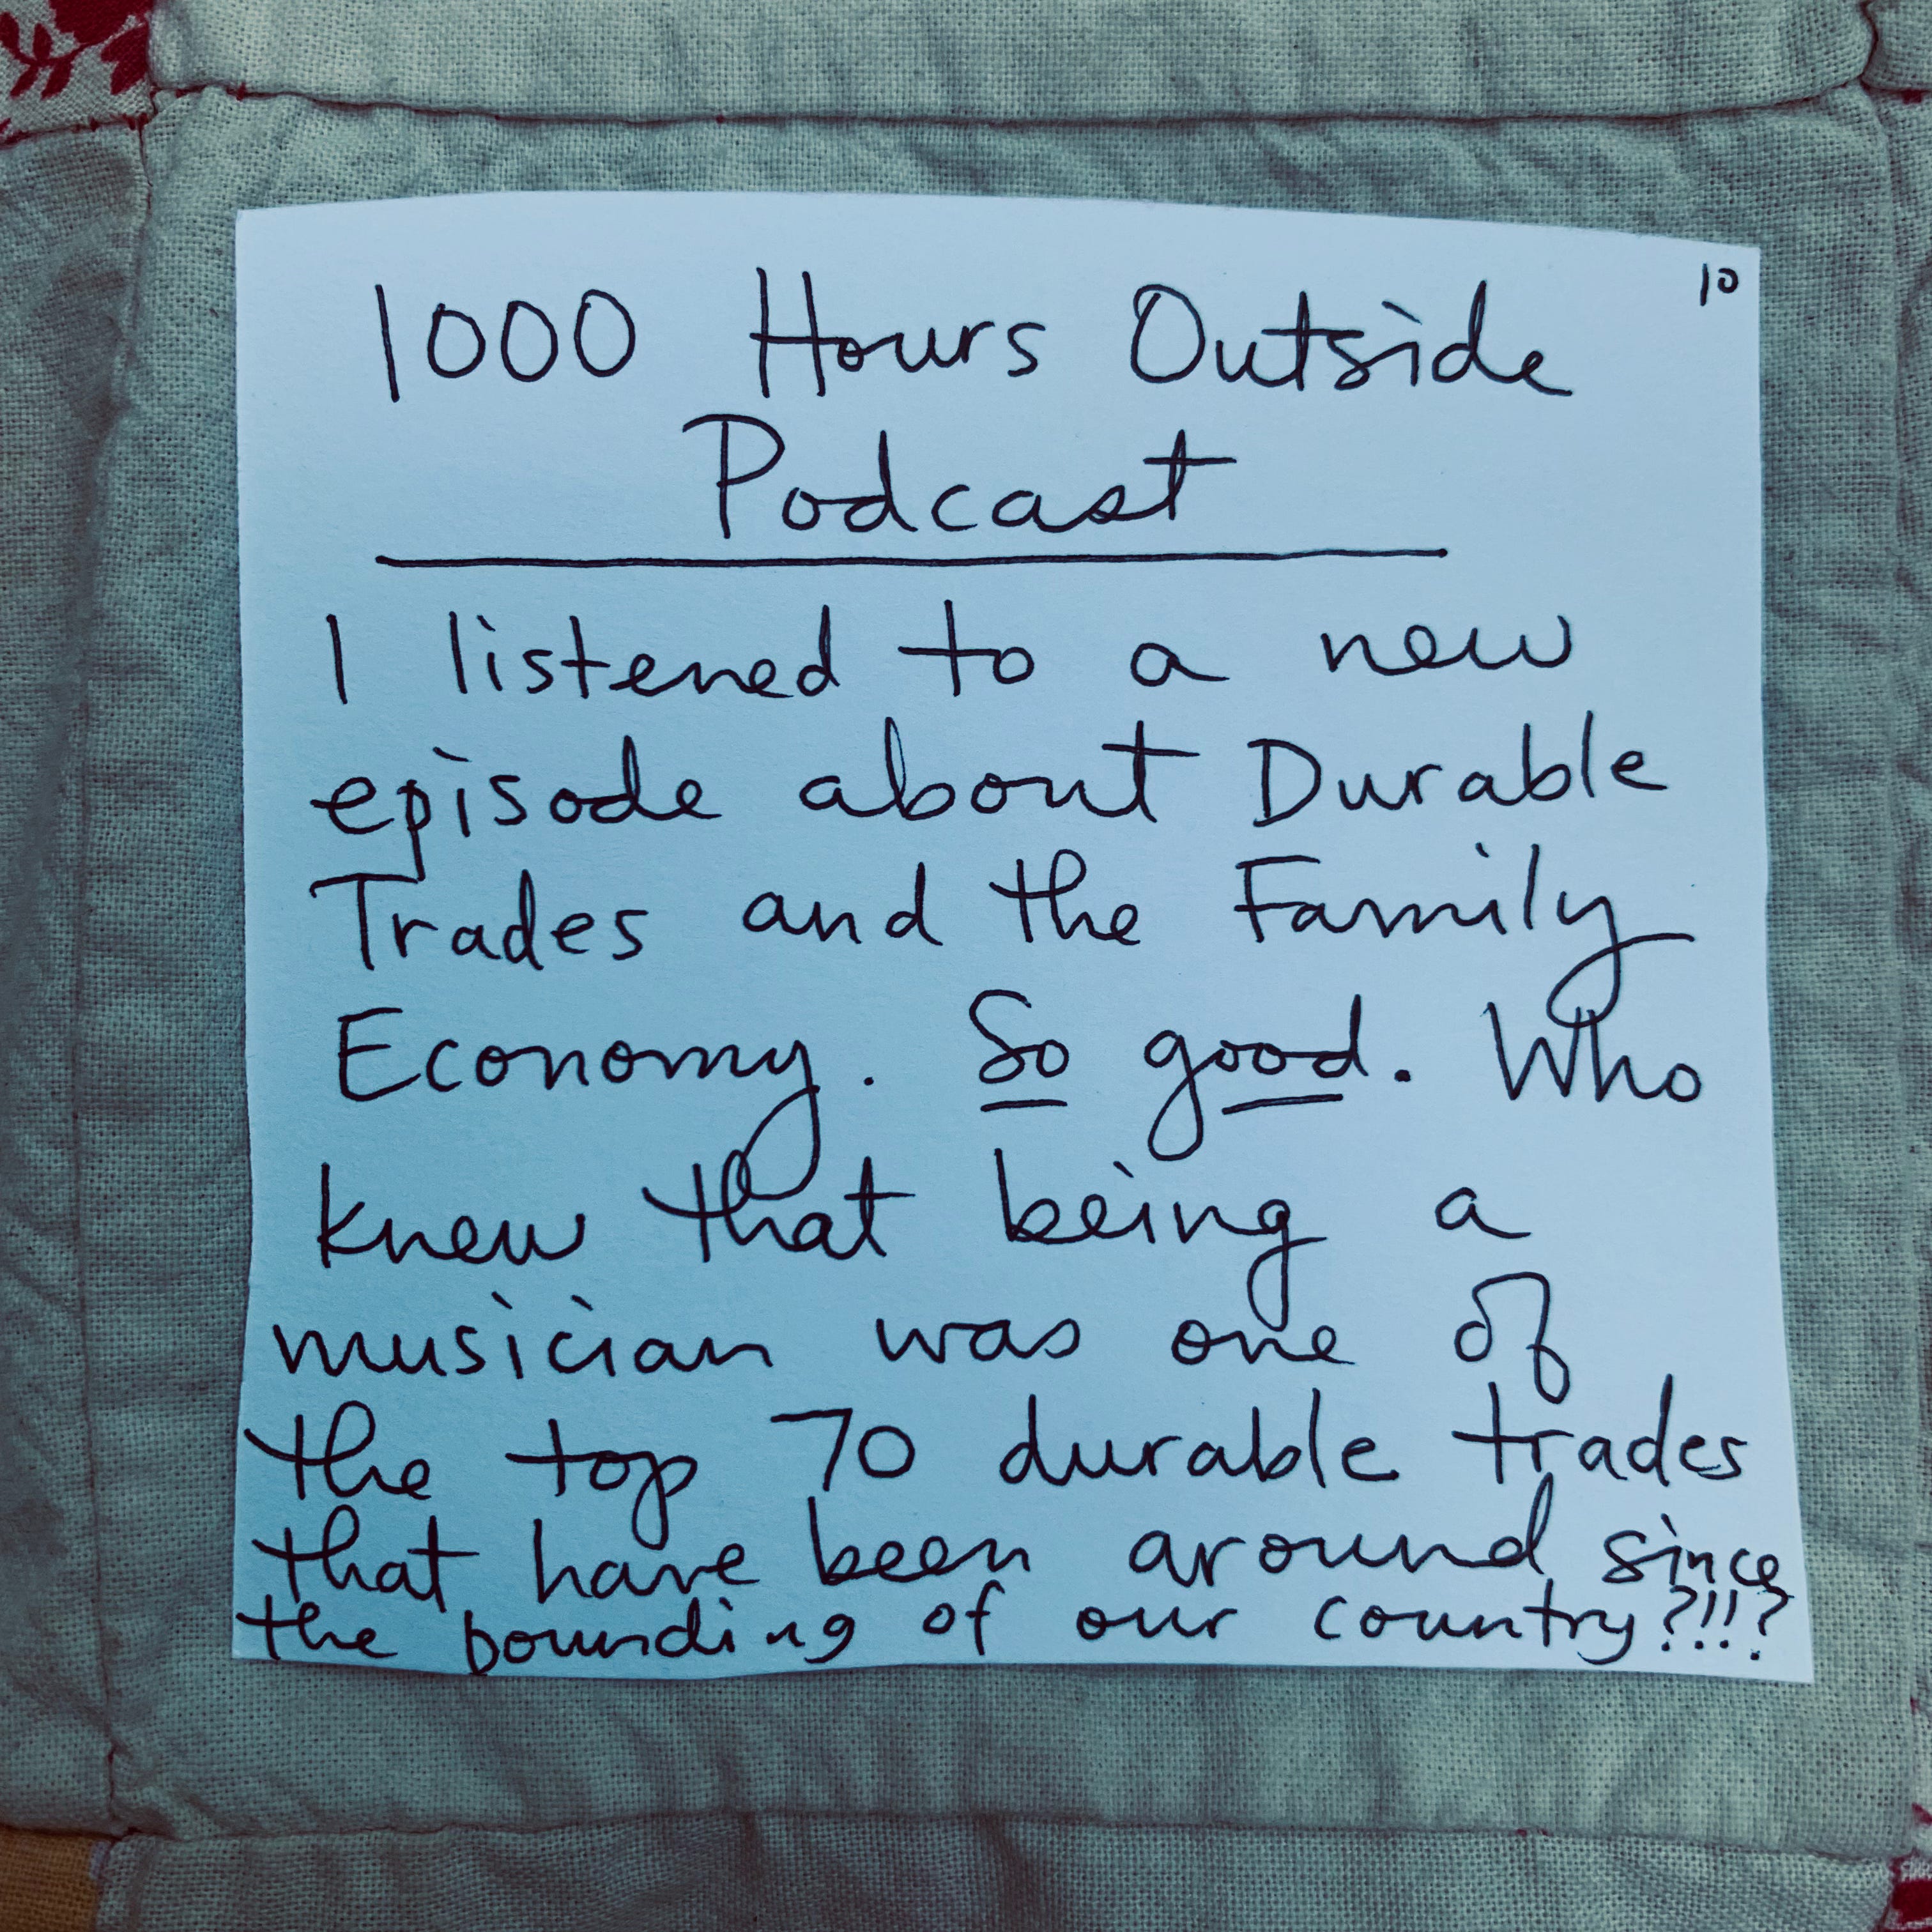 10
1000 Hours Outside
Podcast
I listened to a new
episode about Durable
Trades and the Family
Economy. So good. Who
knew that being a
musician was one of
the top 70 durable trades
that have been around since
the bounding of our country?!!?